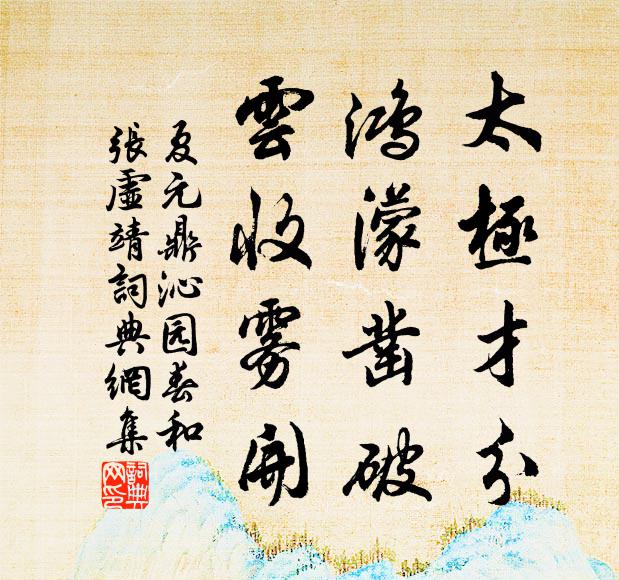 太極才分
鴻濛鑿破
雲收雾開
夏元鼎沁园春和
張虛靖詞典網集
詞典网印